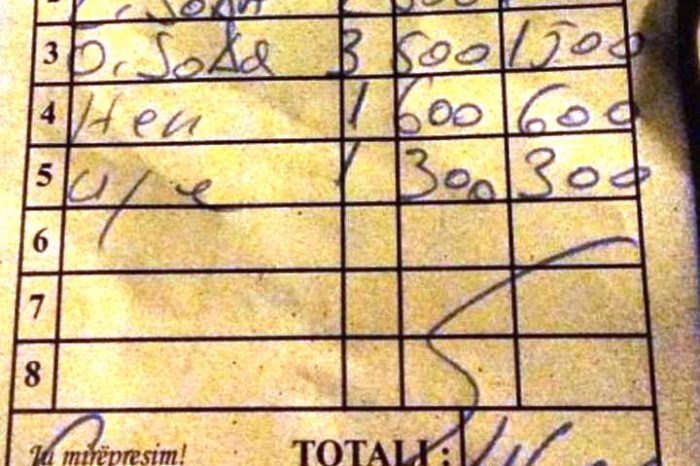 3 D. Soda 3 500 1500
4 Hen 1 600 600
5 1 300 300
6
7
8
Ju mirëpresim! TOTALI :